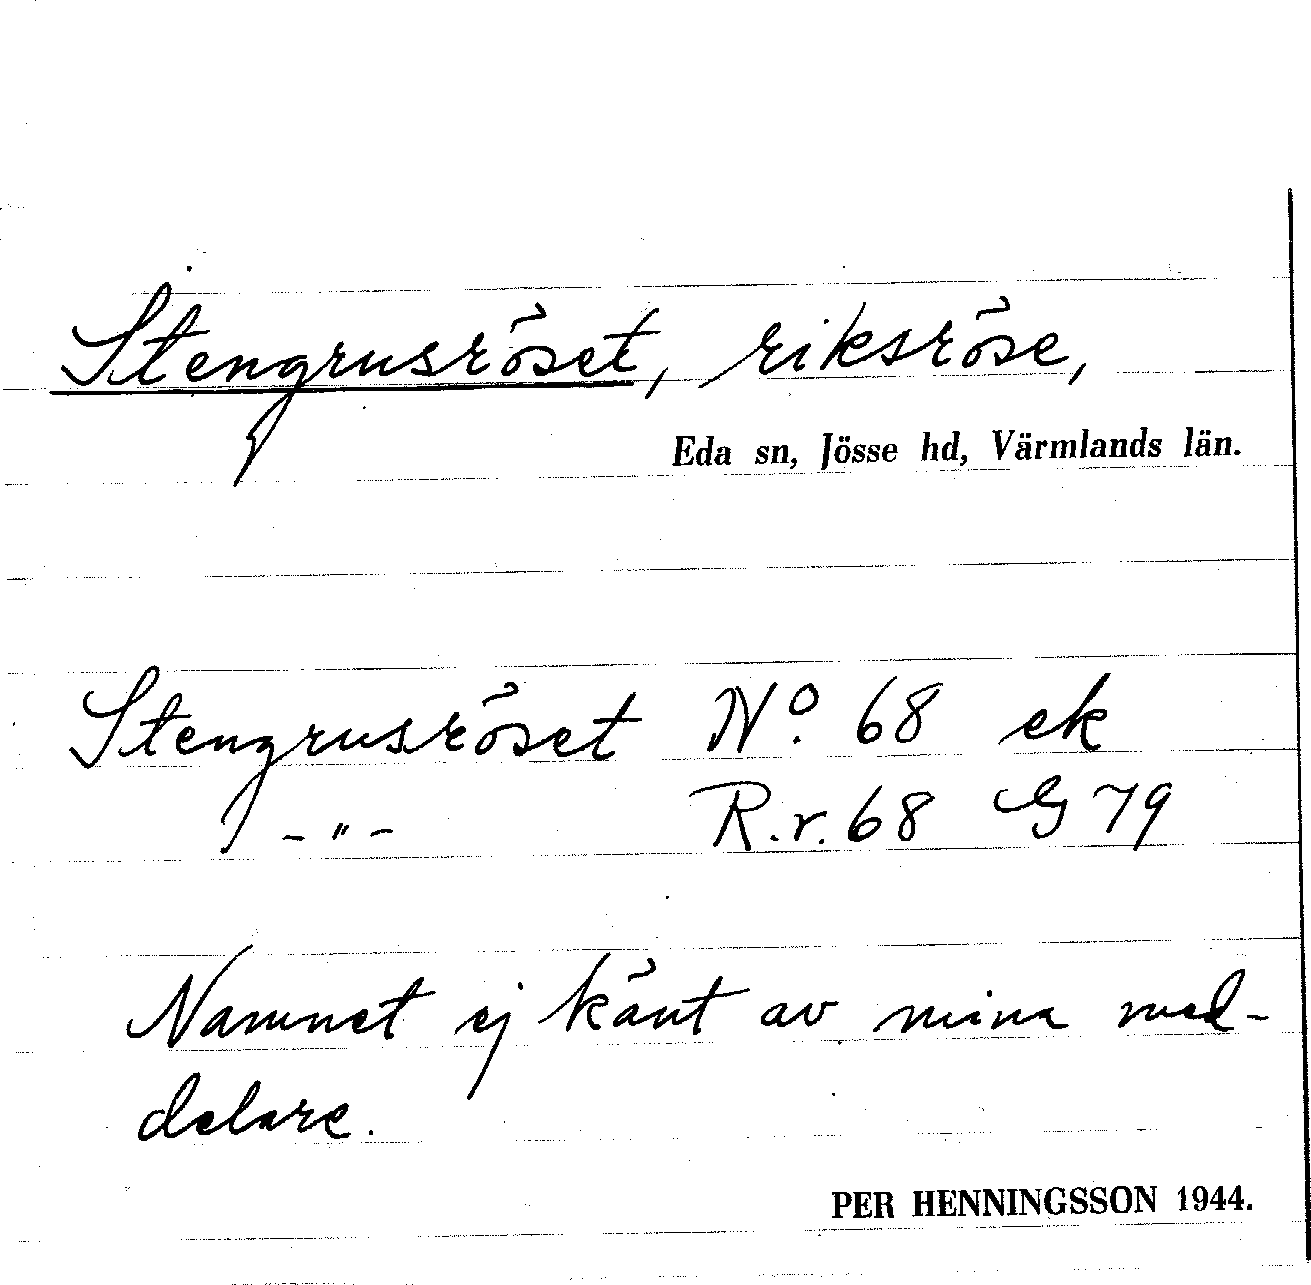 Stengrusröset, riksröse,
Eda sn, Jösse hd, Värmlands län.
Stengrusröset No. 68 ek
-"- R.r. 68 G 79
Namnet ej känt av mina med-
delare.
PER HENNINGSSON 1944.